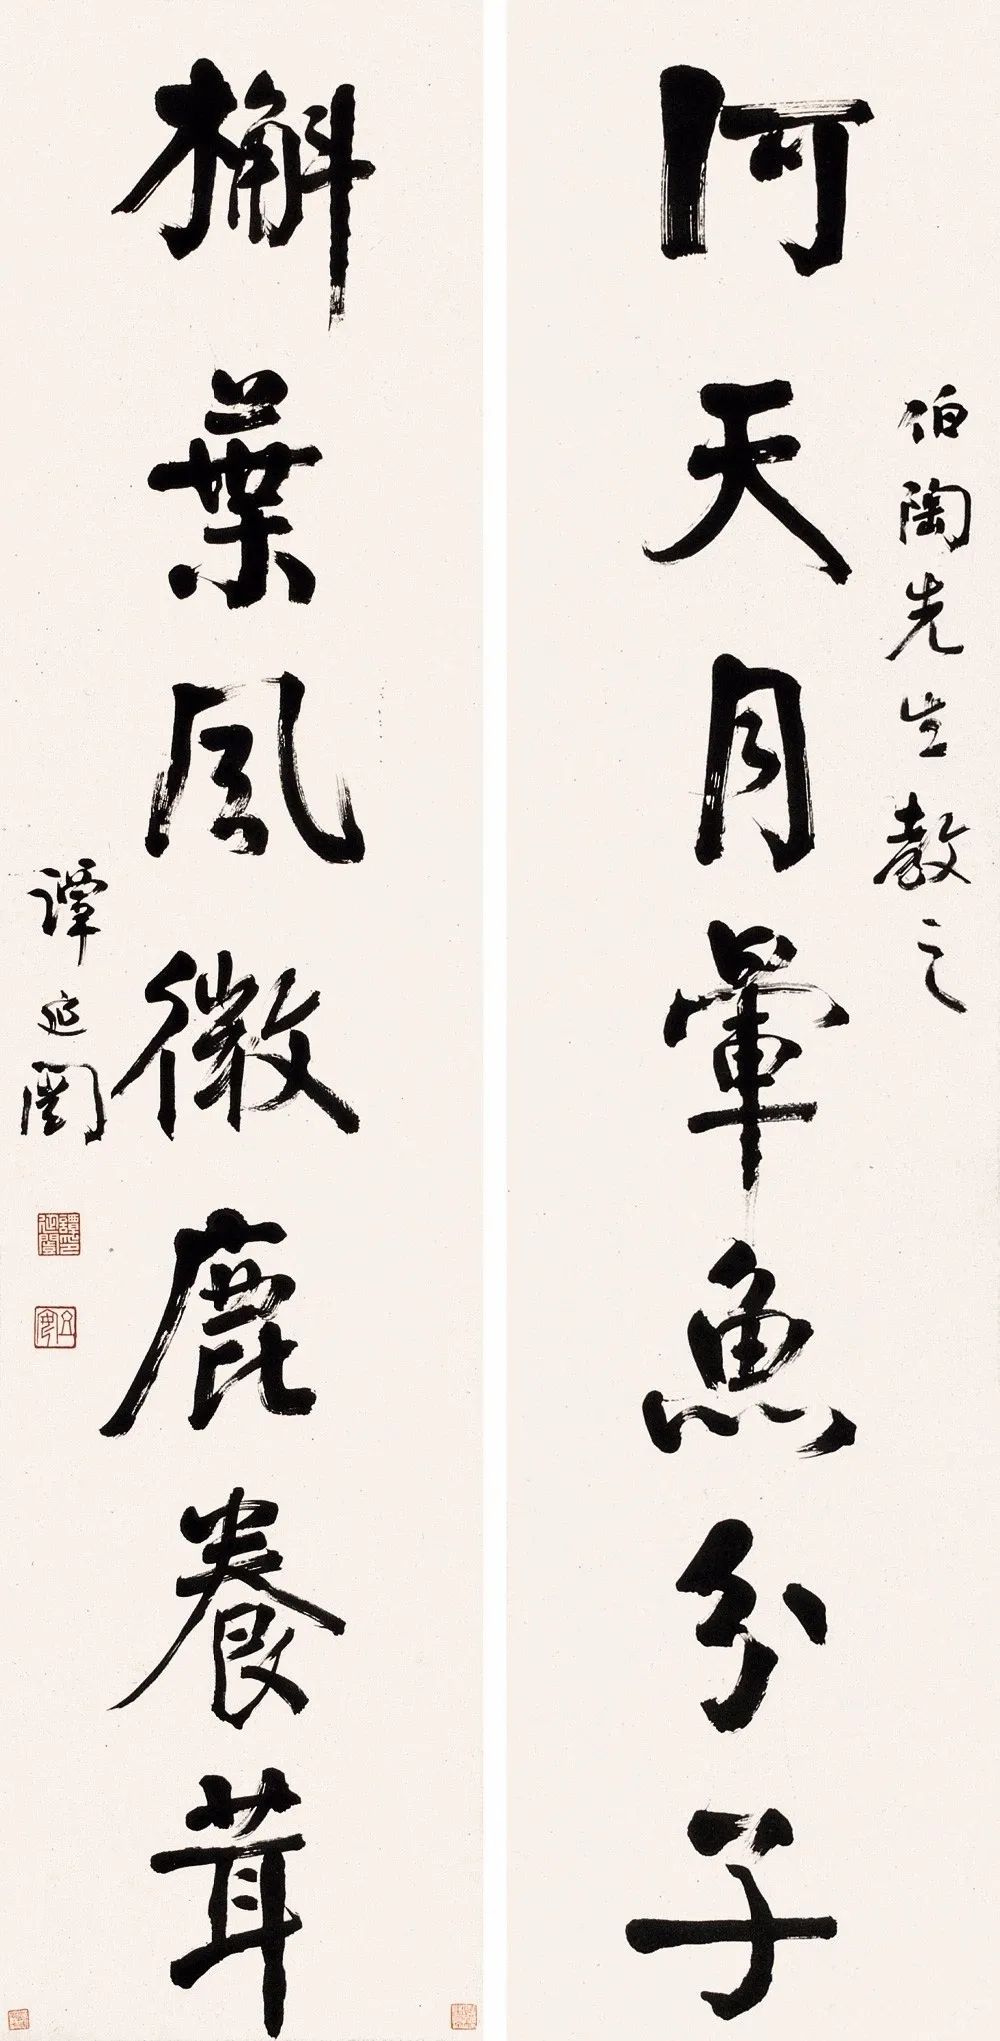 伯陶先生教之
河天月暈魚分子
槲葉風微鹿養茸
譚延闓